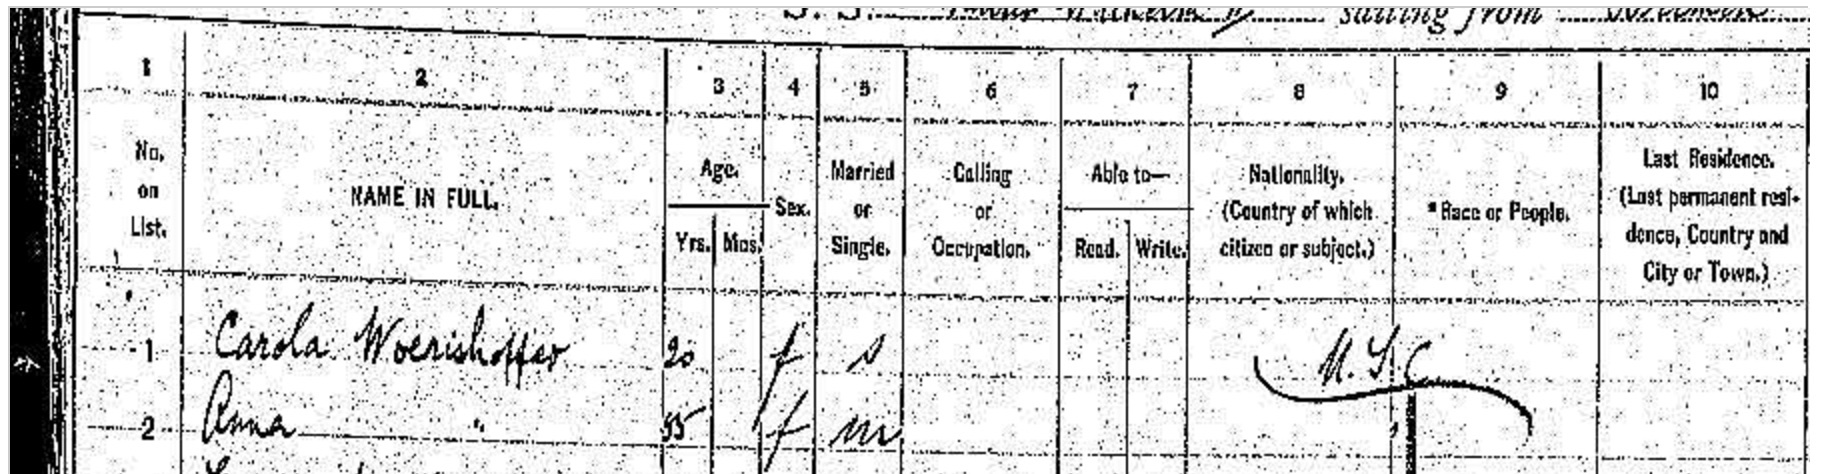 S. S. Kaiser Wilhelm II sailing from
1 2 3 4 5 6 7 8 9 10
No. on List.
NAME IN FULL.
Age.
Yrs. Mos.
Sex.
Married or Single.
Calling or Occupation.
Able to—
Read. Write.
Nationality. (Country of which citizen or subject.)
*Race or People.
Last Residence. (Last permanent residence, Country and City or Town.)
1 Carola Woerishoffer 20 f s
2 Anna " 55 f m